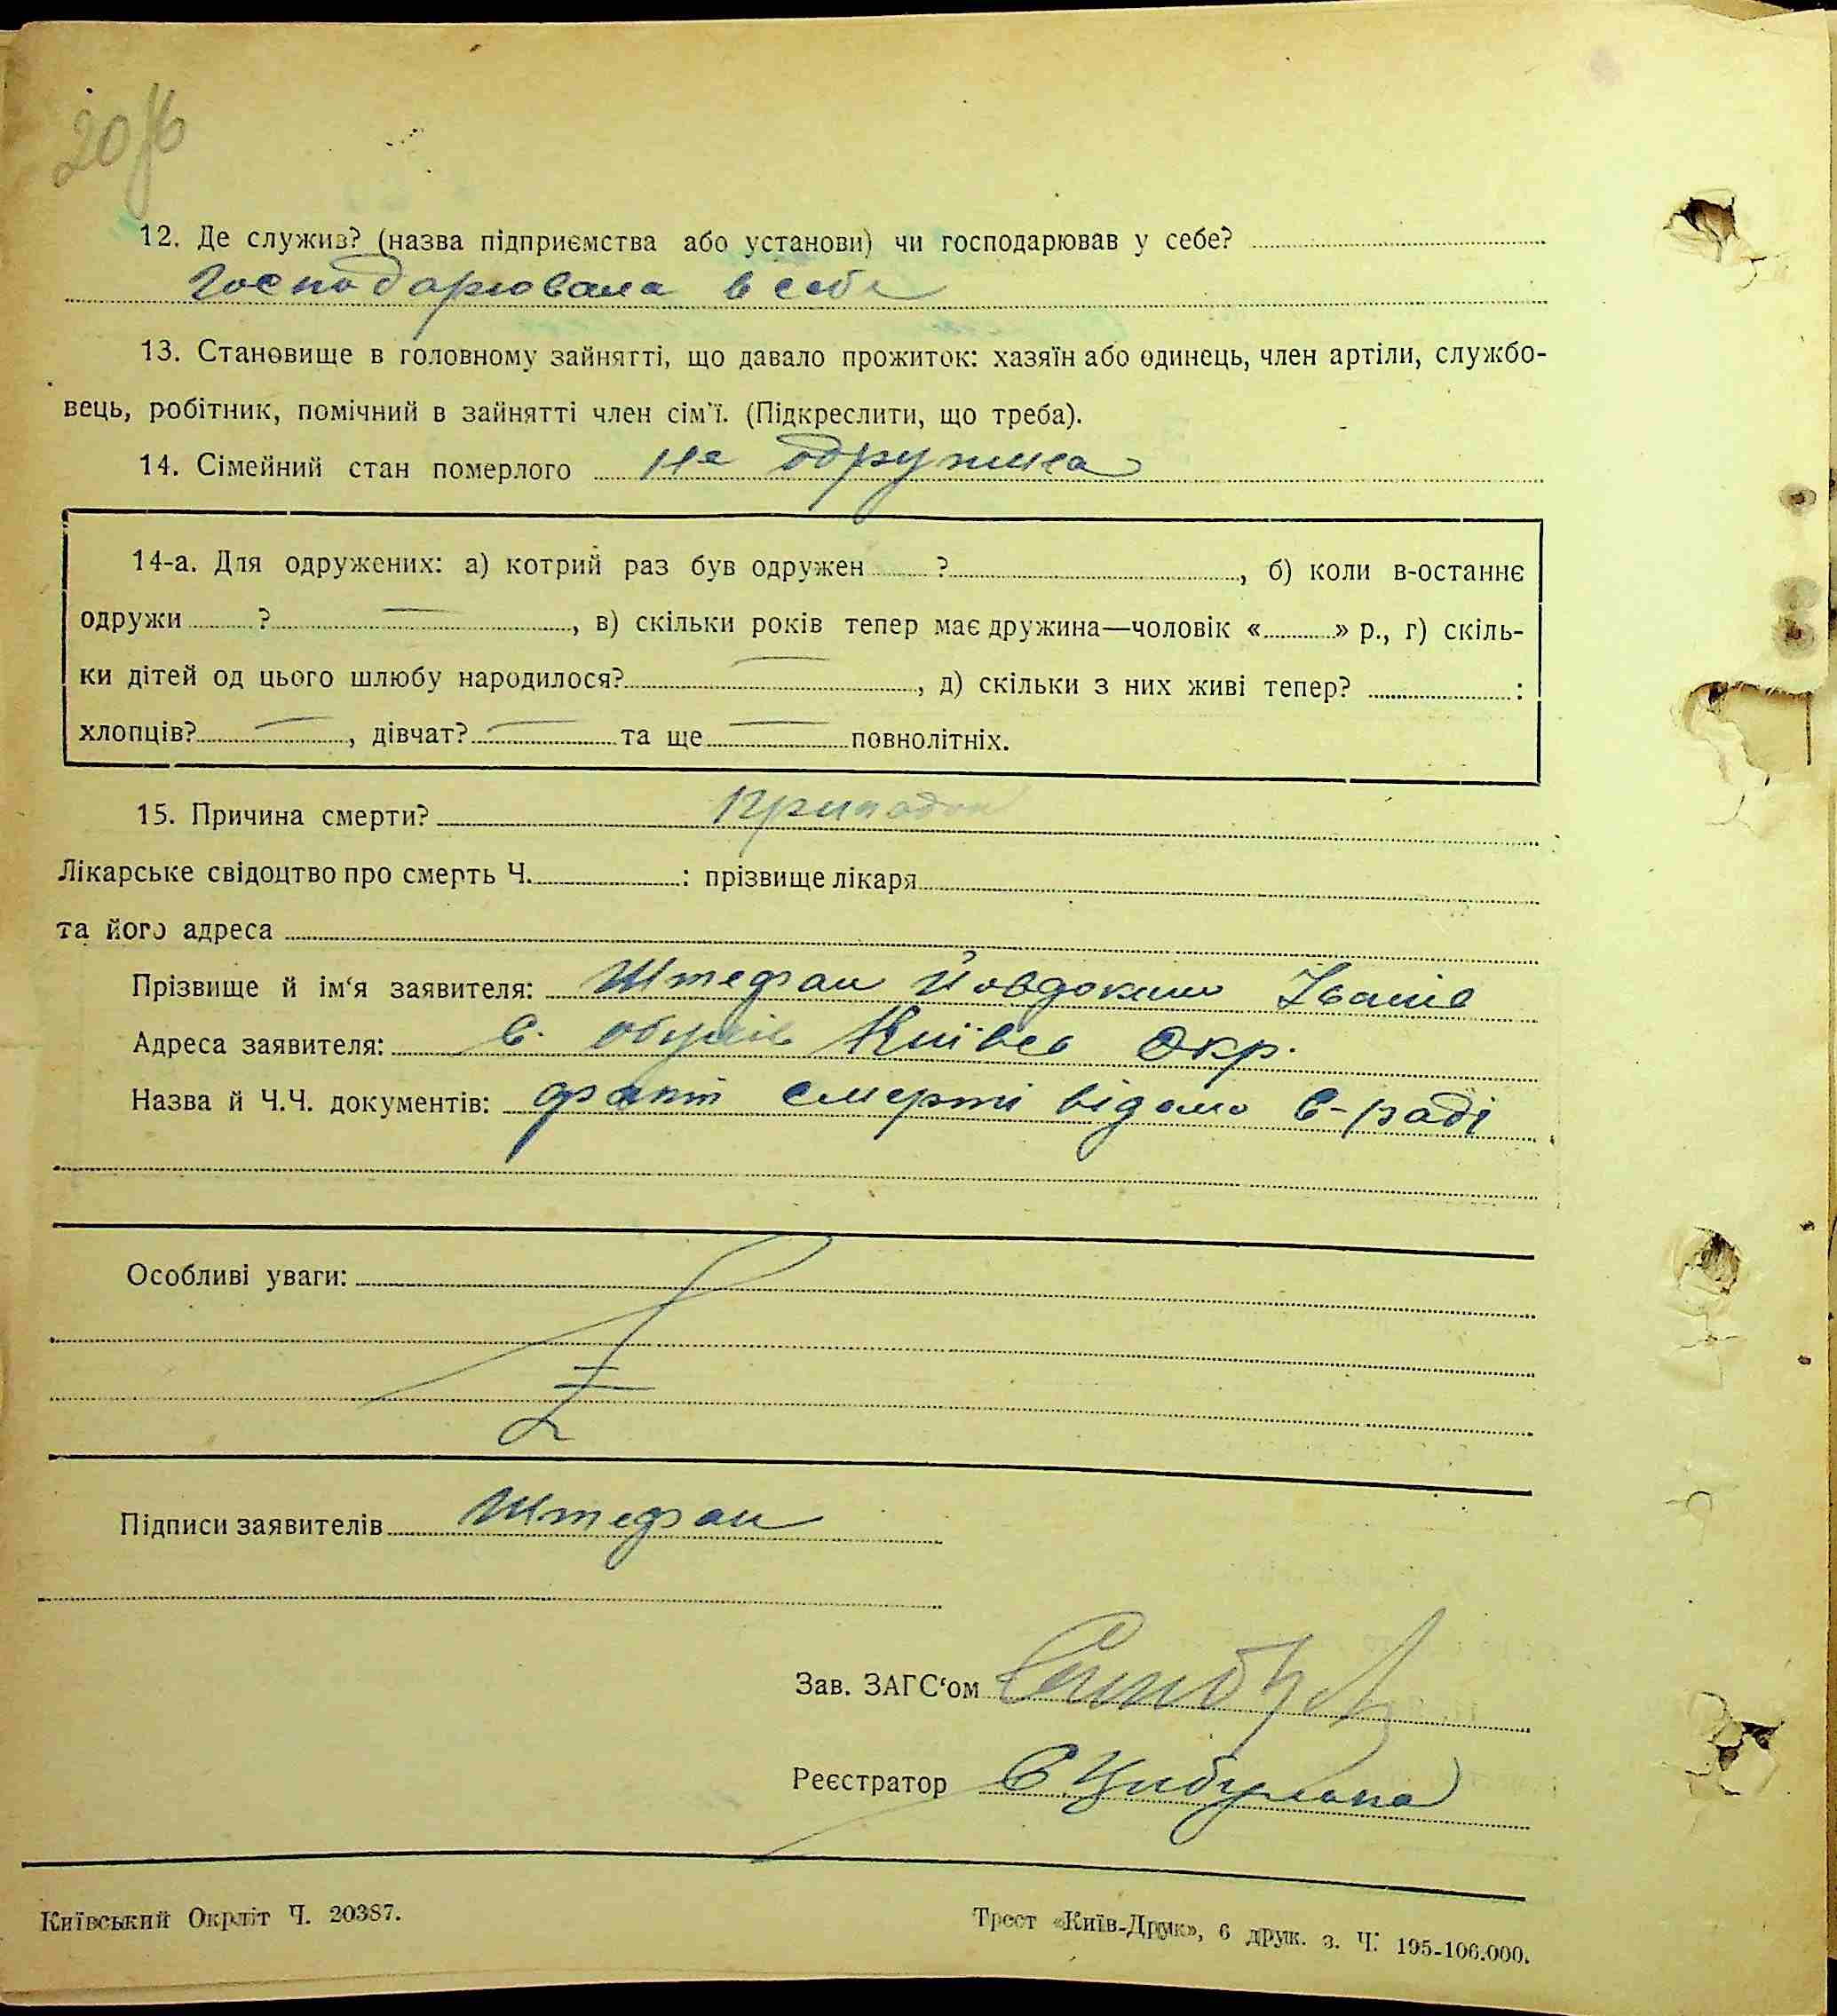 12. Де служив? (назва підприємства або установи) чи господарював у себе?
Господарювала в себе
13. Становище в головному зайнятті, що давало прожиток: хазяїн або одинець, член артіли, службо-
вець, робітник, помічний в зайнятті член сім'ї. (Підкреслити, що треба).
14. Сімейний стан померлого не одружена
14-а. Для одружених: а) котрий раз був одружен ?, б) коли в-останнє
одружи ? —, в) скільки років тепер має дружина—чоловік « » р., г) скіль-
ки дітей од цього шлюбу народилося? —, д) скільки з них живі тепер? :
хлопців? —, дівчат? — та ще — повнолітніх.
15. Причина смерти? Припадок
Лікарське свідоцтво про смерть Ч. : прізвище лікаря
та його адреса
Прізвище й ім'я заявителя: Штефан Йовдоким Іванів
Адреса заявителя: с. Обухів Київсь Окр.
Назва й Ч.Ч. документів: факт смерті відомо с-раді
Особливі уваги:
Підписи заявителів Штефан
Зав. ЗАГС'ом
Реєстратор
Київський Окрліт Ч. 20387.
Трест «Київ-Друк», 6 друк. з. Ч. 195-106.000.